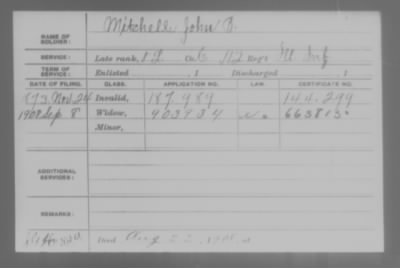 NAME OF SOLDIER: Mitchell John B.
SERVICE: Late rank, Pt Co. Reg't Ill Inf
TERM OF SERVICE: Enlisted , 1 Discharged , 1
DATE OF FILING. CLASS. APPLICATION NO. LAW. CERTIFICATE NO.
1873 Nov. 24 Invalid, 187.989 144.299
1908 Sep 8 Widow, 903934 663813
Minor,
ADDITIONAL SERVICES:
REMARKS:
Died Aug 22, 1908, at